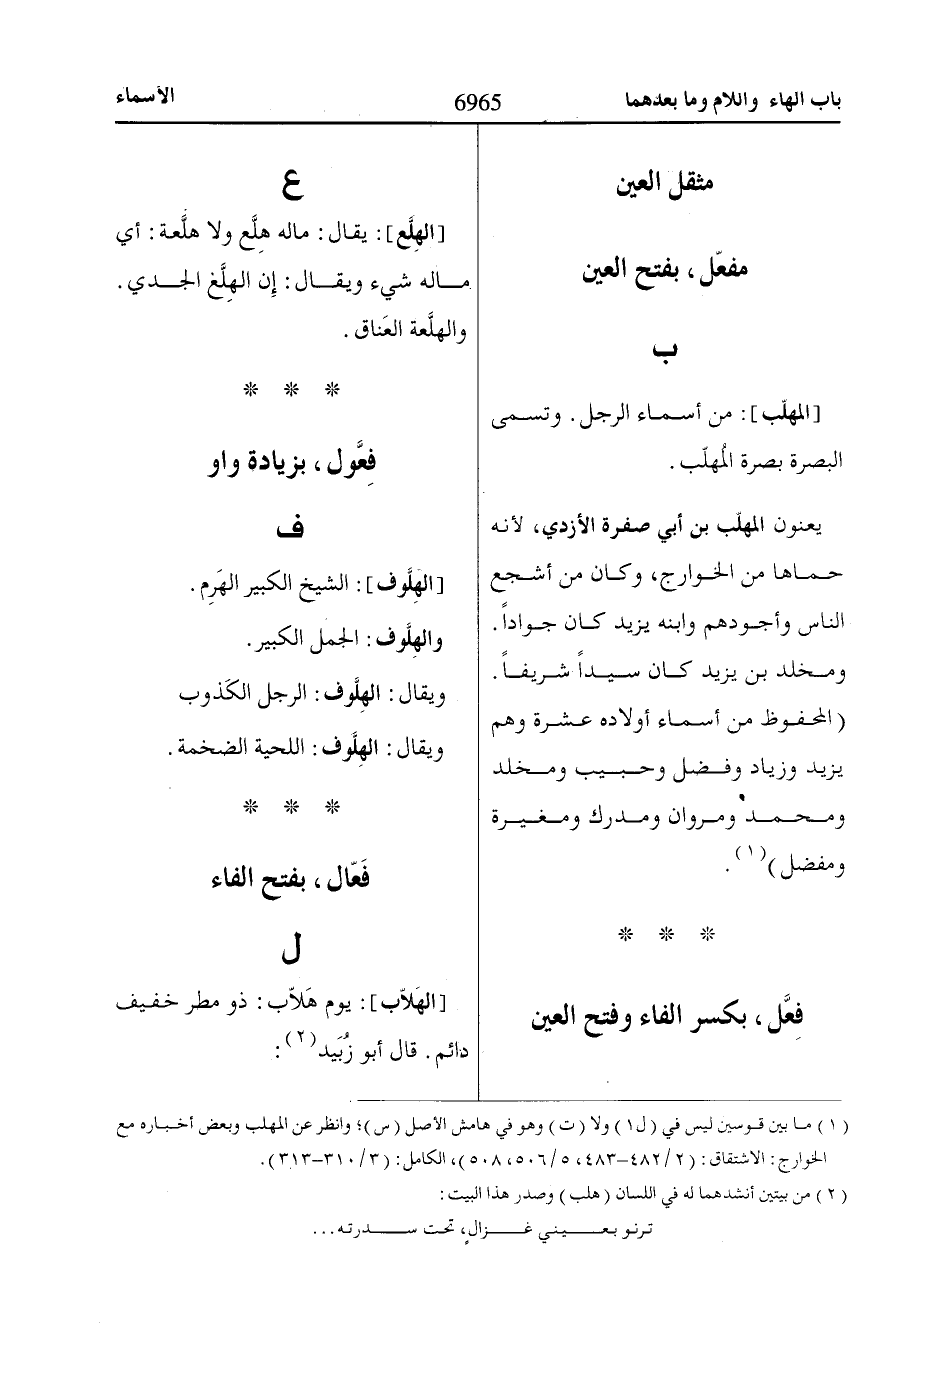 باب الهاء واللام وما بعدهما
6965
الأسماء
مثقل العين
مفعّل ، بفتح العين
ب
[المهلّب]: من أسماء الرجل. وتسمى
البصرة بصرة المُهلّب.
يعنون المهلّب بن أبي صفرة الأزدي، لأنه
حماها من الخوارج، وكان من أشجع
الناس وأجودهم وابنه يزيد كان جواداً.
ومخلد بن يزيد كان سيداً شريفاً.
(المحفوظ من أسماء أولاده عشرة وهم
يزيد وزياد وفضل وحبيب ومخلد
ومحمد ومروان ومدرك ومغيرة
ومفضل)(١).
* * *
فِعَّل ، بكسر الفاء وفتح العين
ع
[الهِلَّع]: يقال: ماله هِلَّع ولا هلَّعة: أي
ماله شيء ويقال: إن الهِلَّغ الجدي.
والهلَّعة العَناق.
* * *
فِعَّول ، بزيادة واو
ف
[الهِلَّوف]: الشيخ الكبير الهَرِم.
والهِلَّوف: الجمل الكبير.
ويقال: الهِلَّوف: الرجل الكَذوب
ويقال: الهِلَّوف: اللحية الضخمة.
* * *
فَعّال ، بفتح الفاء
ل
[الهَلاّب]: يوم هَلاّب: ذو مطر خفيف
دائم. قال أبو زُبَيد(٢):
(١) ما بين قوسين ليس في (ل١) ولا (ت) وهو في هامش الأصل (س)؛ وانظر عن المهلب وبعض أخباره مع
الخوارج: الاشتقاق: (٢/ ٤٨٢–٤٨٣، ٥/ ٥٠٦، ٥٠٨)، الكامل: (٣/ ٣١٠–٣١٣).
(٢) من بيتين أنشدهما له في اللسان (هلب) وصدر هذا البيت:
ترنو بعيني غزالٍ، تحت سدرته...